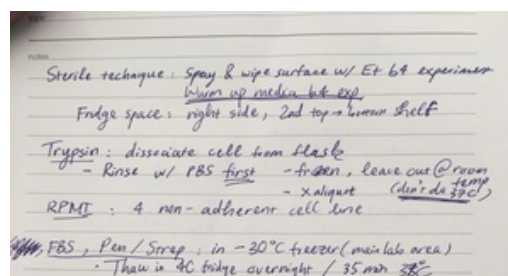 topic
notes
Sterile technique : Spray & wipe surface w/ Et b4 experiment
Warm up media b4 exp
Fridge space : right side, 2nd top → bottom shelf
Trypsin : dissociate cell from flask
- Rinse w/ PBS first - frozen, leave out @ room temp
- x aliquot (don't do 37C!)
RPMT : 4 non-adherent cell line
FBS, Pen/Strep : in -30°C freezer (main lab area)
• Thaw in 4C fridge overnight / 35 min